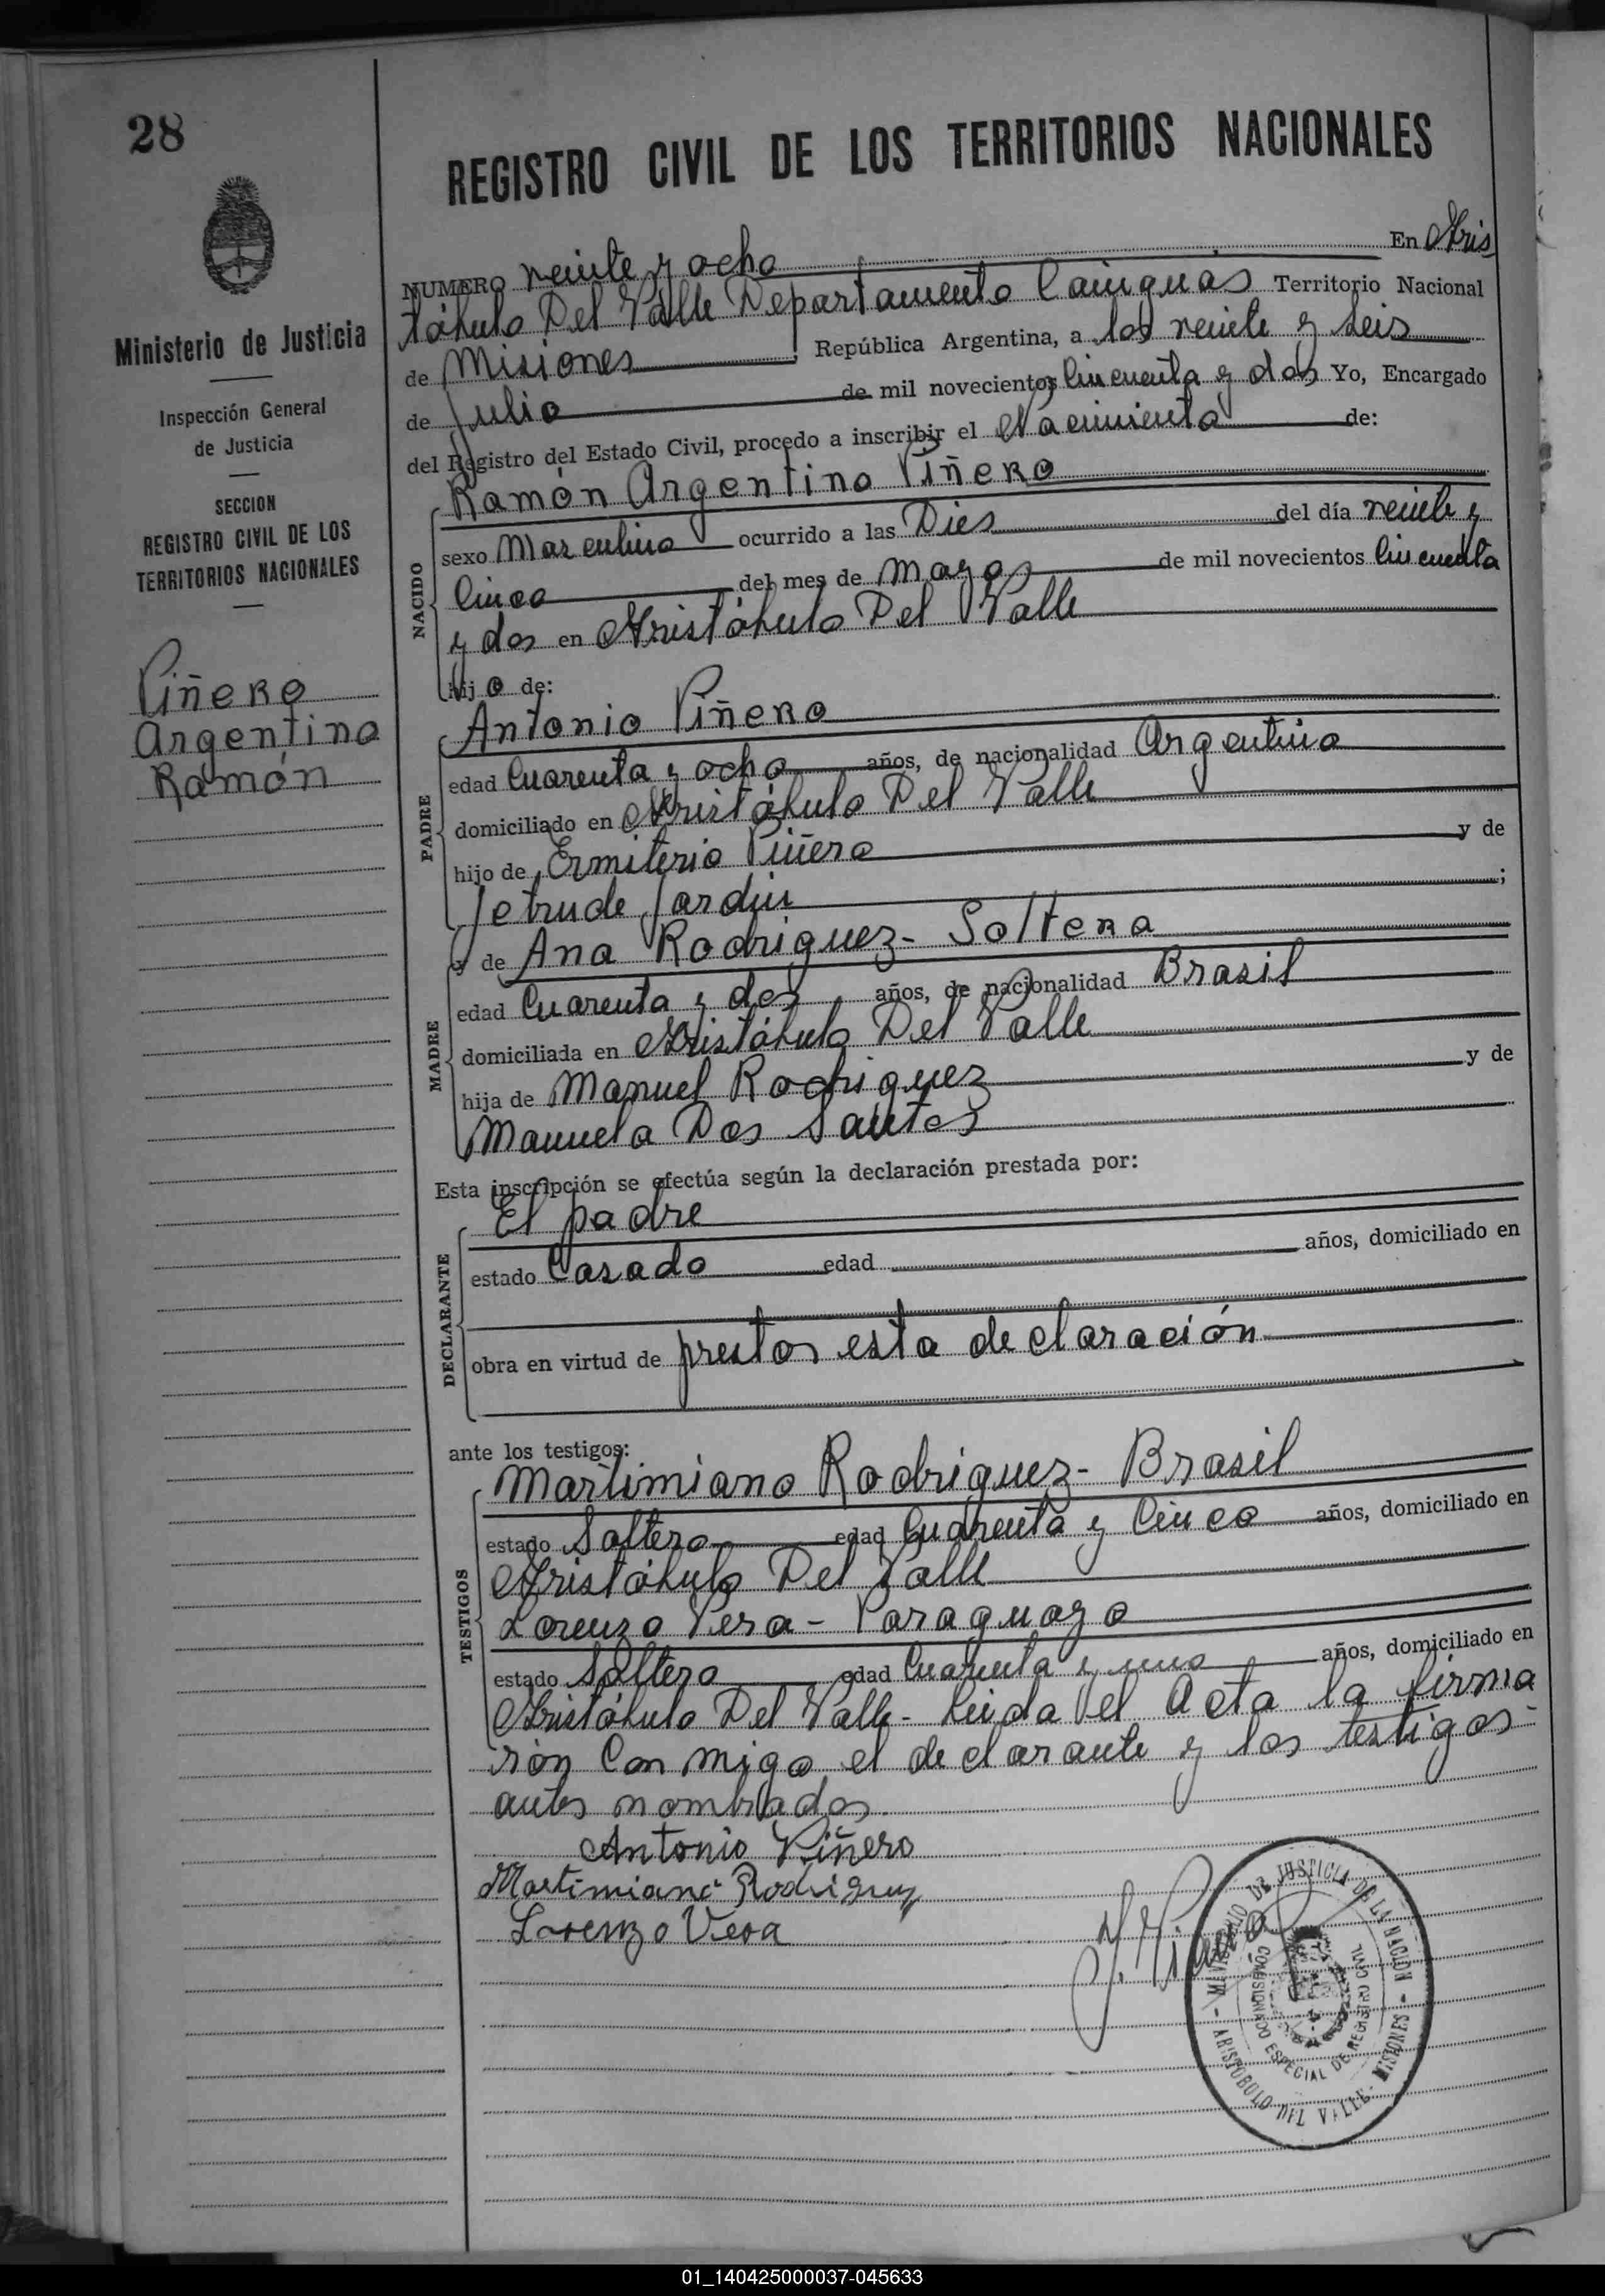 28
REGISTRO CIVIL DE LOS TERRITORIOS NACIONALES
Ministerio de Justicia
Inspección General
de Justicia
SECCION
REGISTRO CIVIL DE LOS
TERRITORIOS NACIONALES
Piñero
Argentino
Ramón
NUMERO veinte y ocho En Aris
tóbulo Del Valle Departamento Cainguás Territorio Nacional
de Misiones República Argentina, a los veinte y seis
de Julio de mil novecientos Cincuenta y dos Yo, Encargado
del Registro del Estado Civil, procedo a inscribir el Nacimiento de:
NACIDO
Ramón Argentino Piñero
sexo Masculino ocurrido a las Dies del día veinte y
Cinco del mes de Mayo de mil novecientos Cincuenta
y dos en Aristóbulo Del Valle
hijo de:
PADRE
Antonio Piñero
edad Cuarenta y ocho años, de nacionalidad Argentino
domiciliado en Aristóbulo Del Valle
hijo de Ermiterio Piñero y de
Jetrude Jardin ;
MADRE
y de Ana Rodriguez - Soltera
edad Cuarenta y dos años, de nacionalidad Brasil
domiciliada en Aristóbulo Del Valle
hija de Manuel Rodriguez y de
Manuela Dos Santos
Esta inscripción se efectúa según la declaración prestada por:
DECLARANTE
El padre
estado Casado edad años, domiciliado en
obra en virtud de prestar esta declaración
ante los testigos:
TESTIGOS
Martimiano Rodriguez - Brasil
estado Soltero edad Cuarenta y Cinco años, domiciliado en
Aristóbulo Del Valle
Lorenzo Vera - Paraguayo
estado Soltero edad Cuarenta y uno años, domiciliado en
Aristóbulo Del Valle - Leida el Acta la firma
ron Con migo el declarante y los testigos
antes nombrados
Antonio Piñero
Martimiano Rodriguez
Lorenzo Vera
MINISTERIO DE JUSTICIA DE LA NACION
COMISIONADO ESPECIAL DE REGISTRO CIVIL
- ARISTOBULO DEL VALLE - MISIONES -
01_140425000037-045633